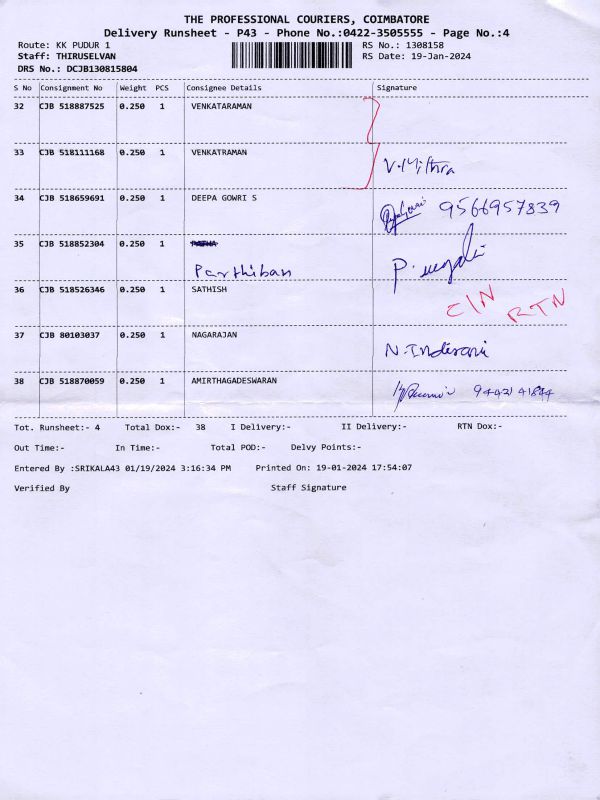 THE PROFESSIONAL COURIERS, COIMBATORE
Delivery Runsheet - P43 - Phone No.:0422-3505555 - Page No.:4
Route: KK PUDUR 1 RS No.: 1308158
Staff: THIRUSELVAN RS Date: 19-Jan-2024
DRS No.: DCJB130815804
S No Consignment No Weight PCS Consignee Details Signature
32 CJB 518887525 0.250 1 VENKATARAMAN
33 CJB 518111168 0.250 1 VENKATRAMAN V.Mithra
34 CJB 518659691 0.250 1 DEEPA GOWRI S 9566957839
35 CJB 518852304 0.250 1
Parthiban
36 CJB 518526346 0.250 1 SATHISH C/N RTN
37 CJB 80103037 0.250 1 NAGARAJAN N.Indirani
38 CJB 518870059 0.250 1 AMIRTHAGADESWARAN 9442141844
Tot. Runsheet:- 4 Total Dox:- 38 I Delivery:- II Delivery:- RTN Dox:-
Out Time:- In Time:- Total POD:- Delvy Points:-
Entered By :SRIKALA43 01/19/2024 3:16:34 PM Printed On: 19-01-2024 17:54:07
Verified By Staff Signature